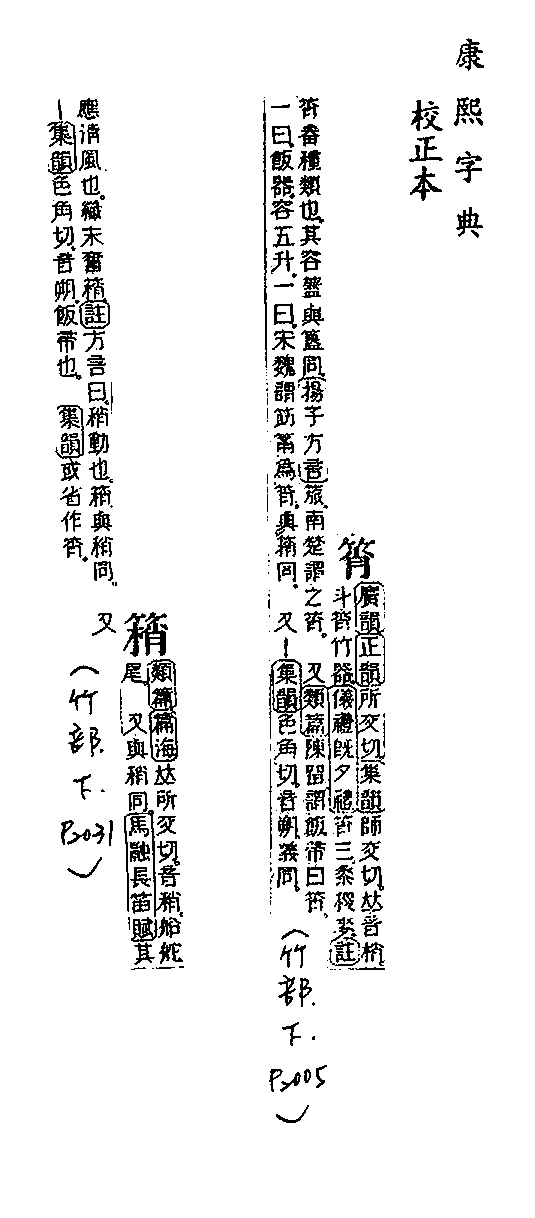 康熙字典
校正本
筲
廣韻正韻所交切集韻師交切𠀤音梢
斗筲竹器儀禮旣夕禮筲三黍稷麥註
筲畚種類也其容蓋與簋同揚子方言旅南楚謂之筲又類篇陳留謂飯帚曰筲
一曰飯器容五升一曰宋魏謂筯筩爲筲與䈰同又集韻色角切音朔義同
（竹部下P005）
䈰
類篇篇海𠀤所交切音稍船舵
尾又與稍同馬融長笛賦其
應淸風也纖末奮䈰註方言曰稍動也䈰與稍同又
集韻色角切音朔飯帚也集韻或省作筲
（竹部下P031）